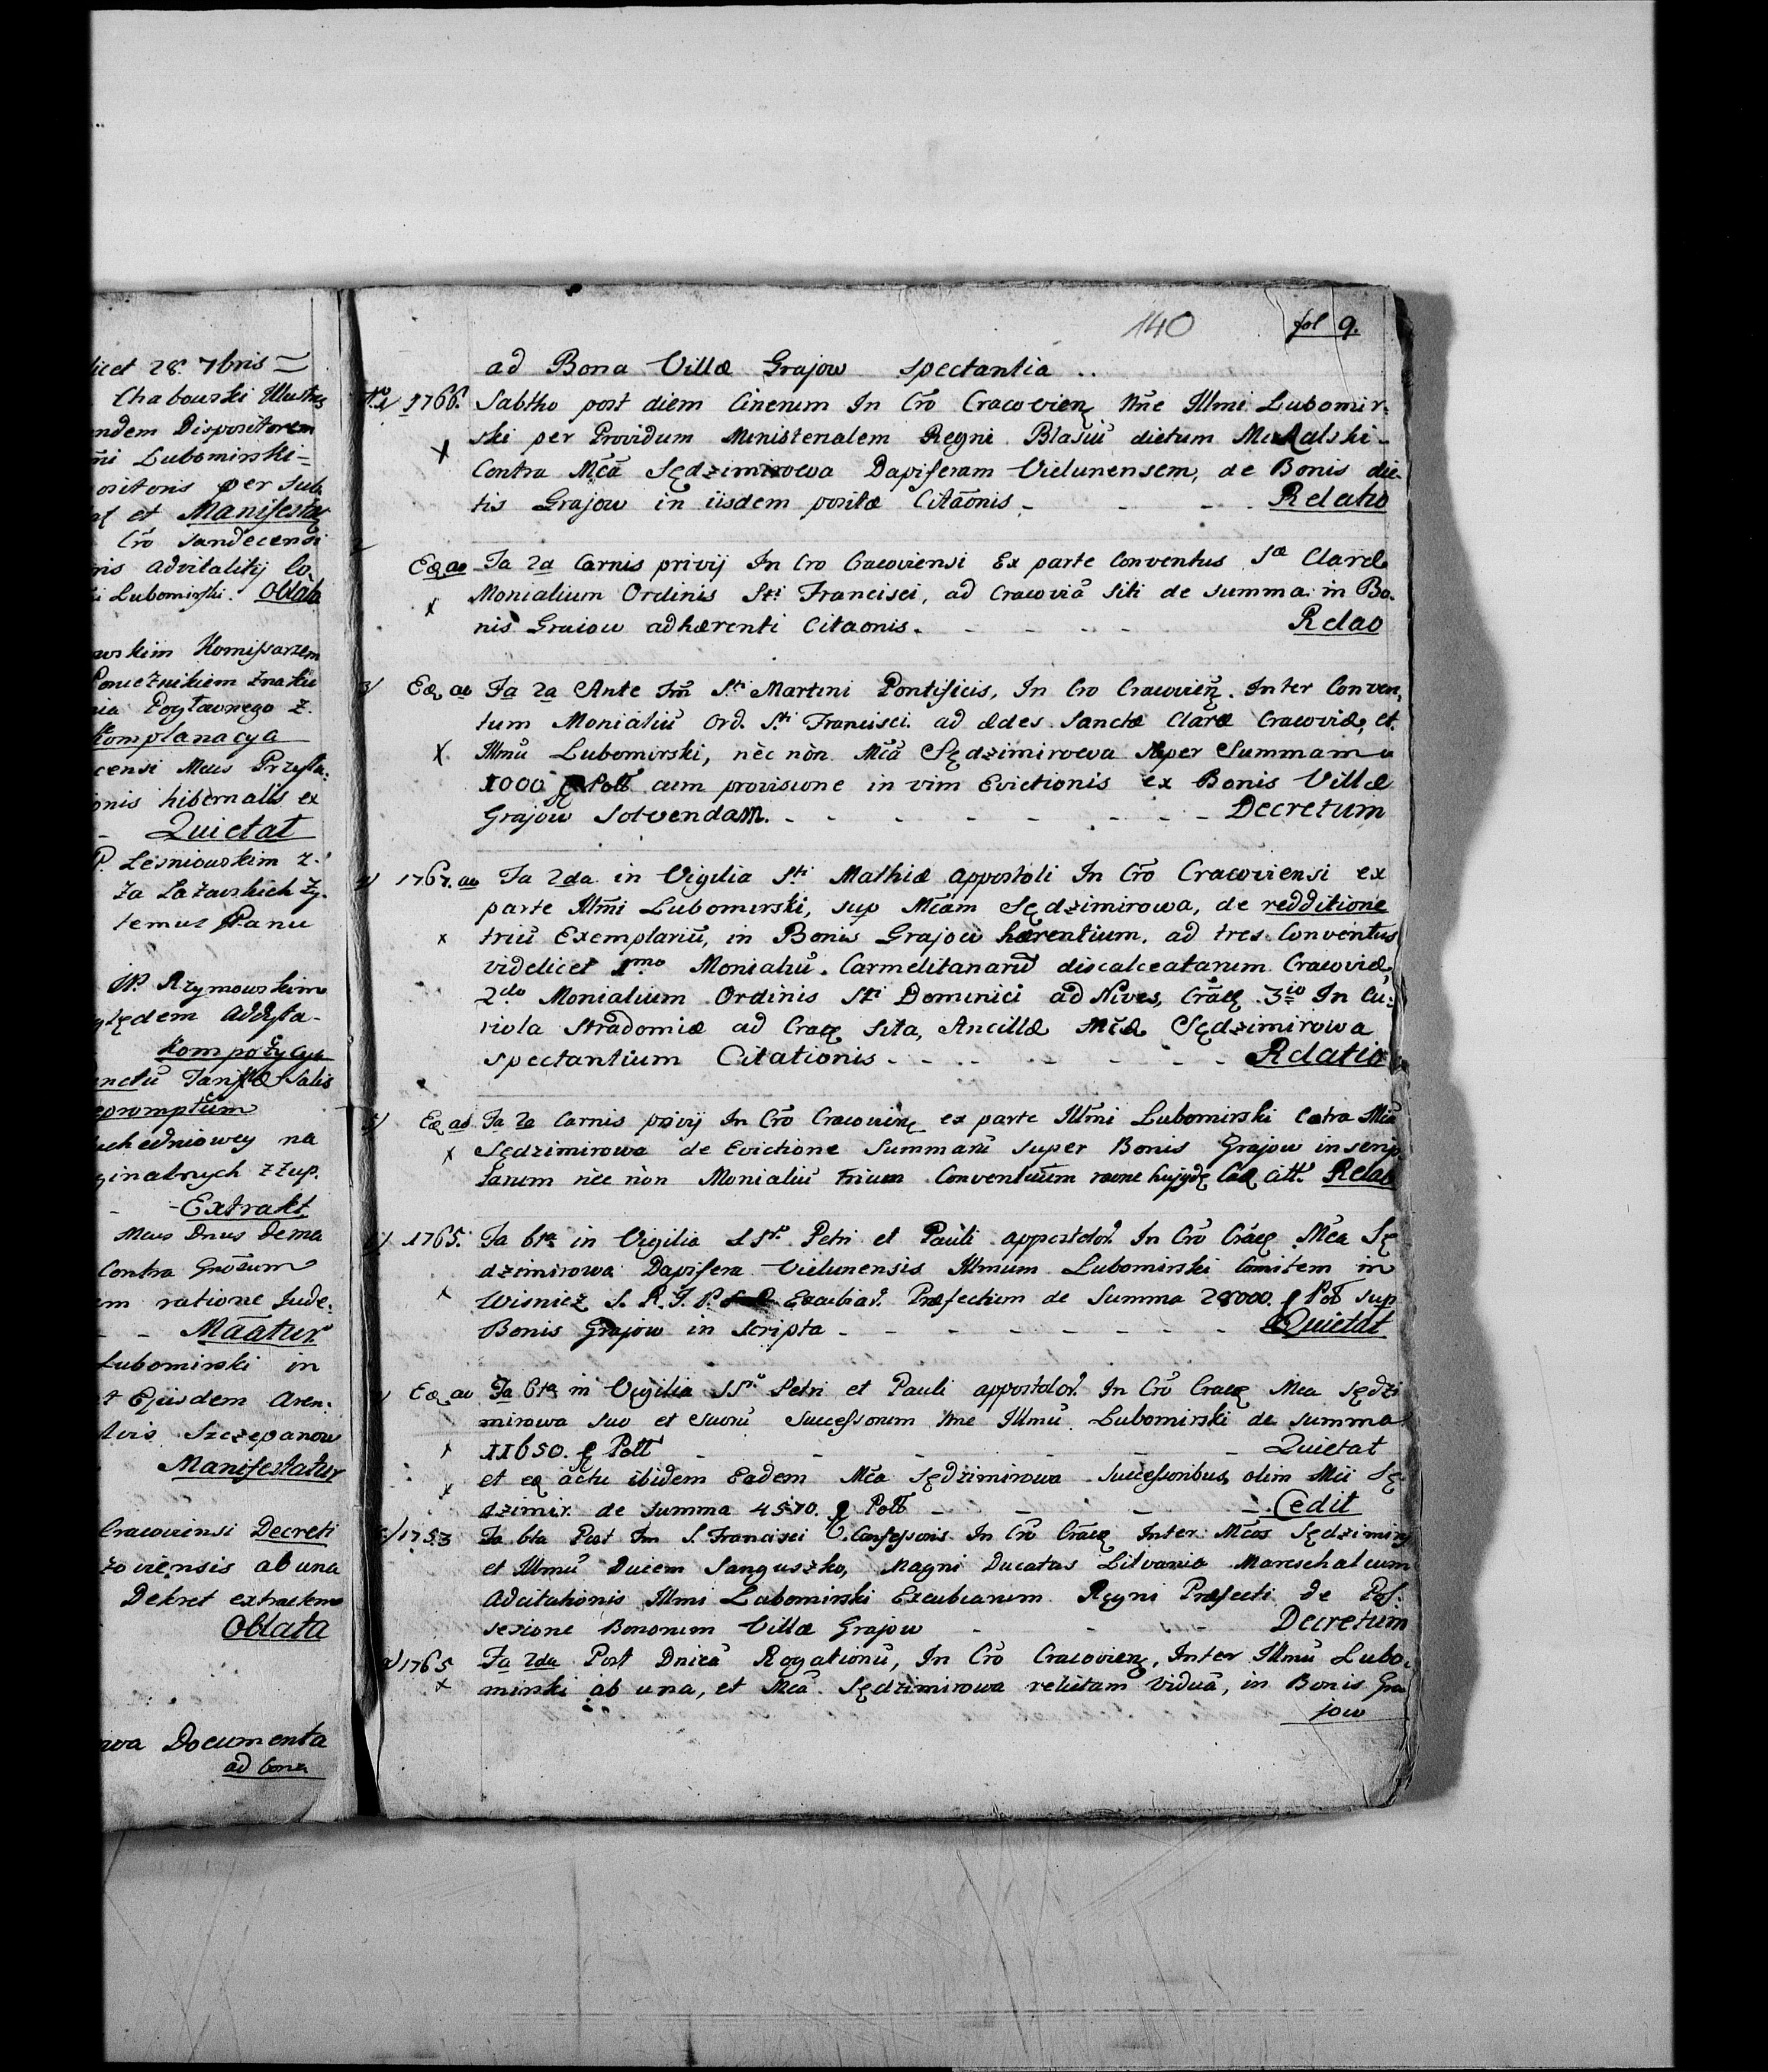 licet 28. 7bris
Chabowski Illustris
endem Dispositorem
mi Lubomirski
ositoris per sub
et Manifestaę
Crō Sandecensi
ris advitalitij
Lubomirski. Oblata
awskim Komissarzem
Poniczńikiem znaku
nia Pogławnego z.
Komplanacya
censi Mcus Przyłę:
onis hibernalis ex
Quietat
P. Lesniowskim z.
Za Zatawskich Zy.
temuz Panu
JP. Rzymowskim
ględem
Kompozycya
Salis
epromptum
na
ginalnych z żup.
Extrakt
Mcus Dnus Dema
Contra Gnōsum
em ratione Jude:
Māatur
Lubomirski in
t Ejusdem Aren:
Szczepanow
Manifestatur
Cracoviensi Decreti
coviensis ab una
Dekret extractem
Oblata
Documenta
ad bona
140 fol 9.
ad Bona Villæ Grajow spectantia ..
1mo 1766. Sabtho post diem Cinerum In Crō Cracovienę nne Illmi Lubomir:
ski per Providum Ministerialem Regni Blasiū dictum Michalski
X Contra Mcā Sędzimirowa Dapiferam Vielunensem, de Bonis dic-
tis Grajow in iisdem positæ Citāonis - - - Relatio
Eæ ao Fa 2a Carnis privij In Cro Cracoviensi Ex parte Conventus Sæ Claræ
X Monialium Ordinis Sti Francisci, ad Cracoviā Siti de summa in Bo-
nis Graiow adhærenti Citaonis. - - - Relao
3/ Eæ ao Fa 2a Ante Fm̄ Sti Martini Pontificis, In Cro Cracovieñ. Inter Conven-
tum Monialiū Ord. Sti Francisci ad ædes Sanctæ Claræ Cracoviæ, et.
X Illmū Lubomirski, nèc nòn Mcā Sędzimirowa super Summam
1000 ƒ Poll cum provisione in vim Evictionis ex Bonis Villæ
Grajow Solvendam. - - - - - - Decretum
4/ 1767. ao Fa 2da in Vigilia Sti Mathiæ appostoli In Crō Cracoviensi ex
parte Illm̄i Lubomirski, sup Mcām Sędzimirowa, de redditione
x triū Exemplariū, in Bonis Grajow hærentium, ad tres Conventus
videlicet 1mo Monialiū. Carmelitanarū discalceatarum Cracoviæ,
2do Monialium Ordinis Sti Dominici ad Nives, Crāæ 3io In Cu:
riola Stradomiæ ad Cracę Sita, Ancillæ Mcæ Sędzimirowa
spectantium Citationis - - - - - - Relatio
5/ Eæ ao Fa 2a Carnis privij In Crō Cracovienę ex parte Illm̄i Lubomirski Cotra Mcā
x Sędzimirowa de Evictione Summarū super Bonis Grajow inscrip
tarum nèc nòn Monialiū trium Conventuum Relao
6/ 1765. Fa 6ta in Vigilia SSto Petri et Pauli appostolor. In Crō Crāæ Mca Sę
dzimirowa Dapifera Vielunensis Illmum Lubomirski Comitem in
x Wisnicz S. R. J. P. Excubiar. Præfectum de Summa 28000. ƒ Poll sup
Bonis Grajow in Scripta - - - - - - Quietat
Eæ ao Fa 6ta in Vigilia SSto Petri et Pauli appostolor. In Crō Cracę Mca Sędzi
mirowa suo et Suorū Successorum nne Illmū Lubomirski de Summa
x 11650. ƒ Poll - - - - - Quietat
x et eæ actu ibidem Eadem Mca Sędzimirowa Successoribus olim Mci Sę-
dzimir. de Summa 4570. ƒ Poll - - - - Cedit
8/ 1753 Fa 6ta Post Fm S. Francisci Confessoris In Crō Crāæ Inter Mcos Sędzimiry
et Illmū Ducem Sanguszko, Magni Ducatus Litvania Mareschalcum
Adcitationis Illmi Lubomirski Excubiarum Regni Præfecti de Pos:
sesione Bonorum Villæ Grajow - - - Decretum
9/ 1765 Fa 2da Post Dnicā Rogationū, In Crō Cracovienę, Inter Illmū Lubo-
x mirski ab una, et Mcā Sędzimirowa relictam viduā, in Bonis Gra
jow